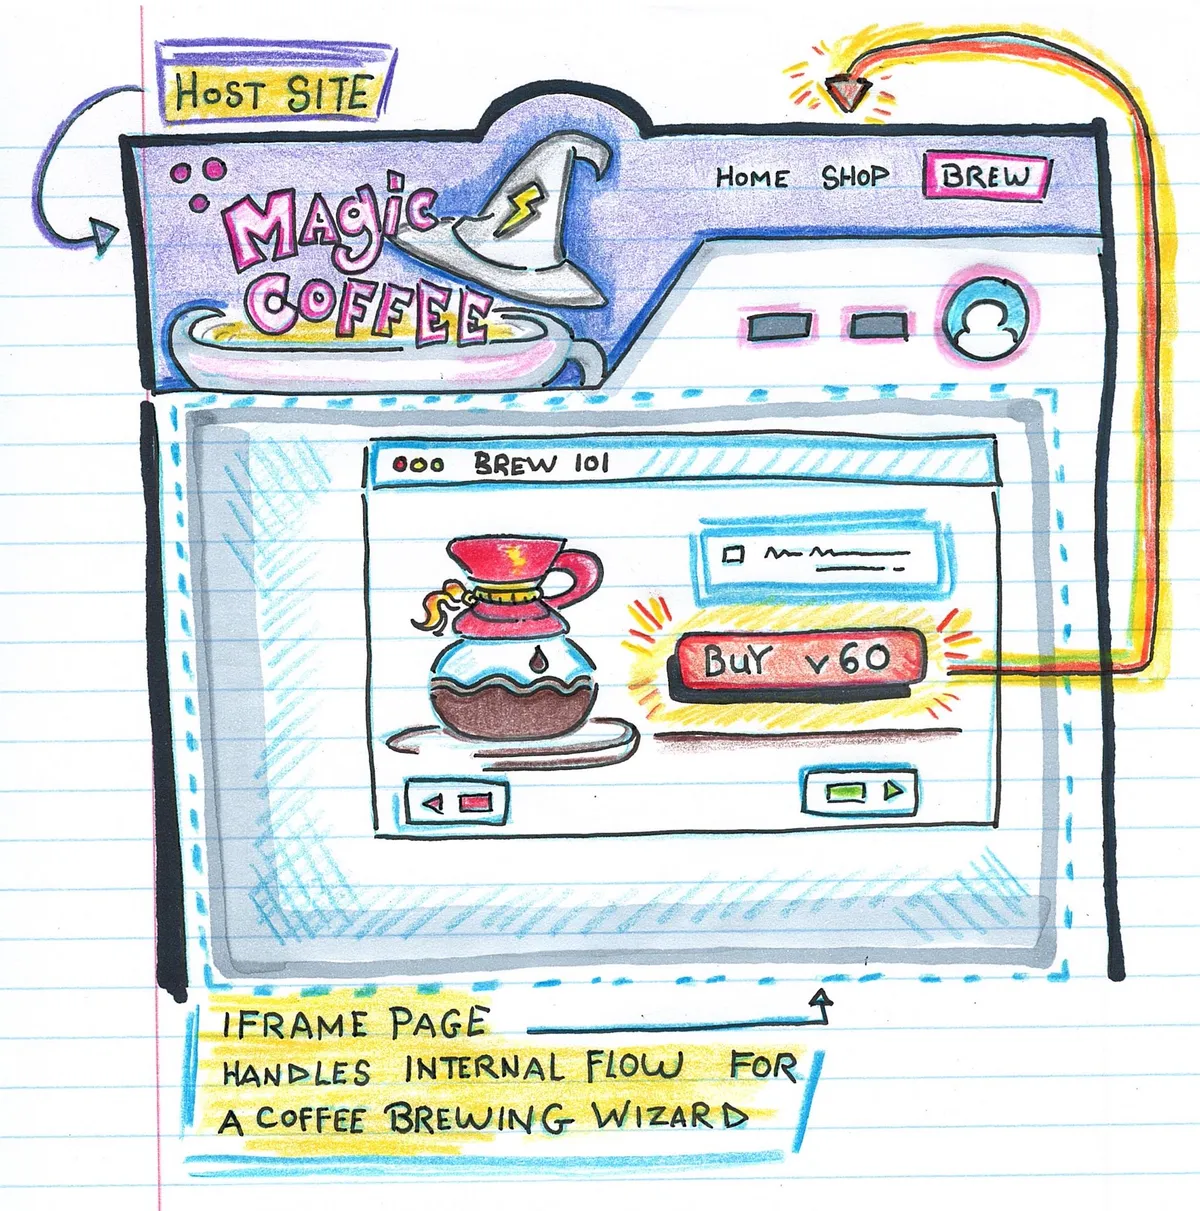 HOST SITE
MAgic
COFFEE
HOME SHOP BREW
BREW 101
BUY v60
IFRAME PAGE
HANDLES INTERNAL FLOW FOR
A COFFEE BREWING WIZARD